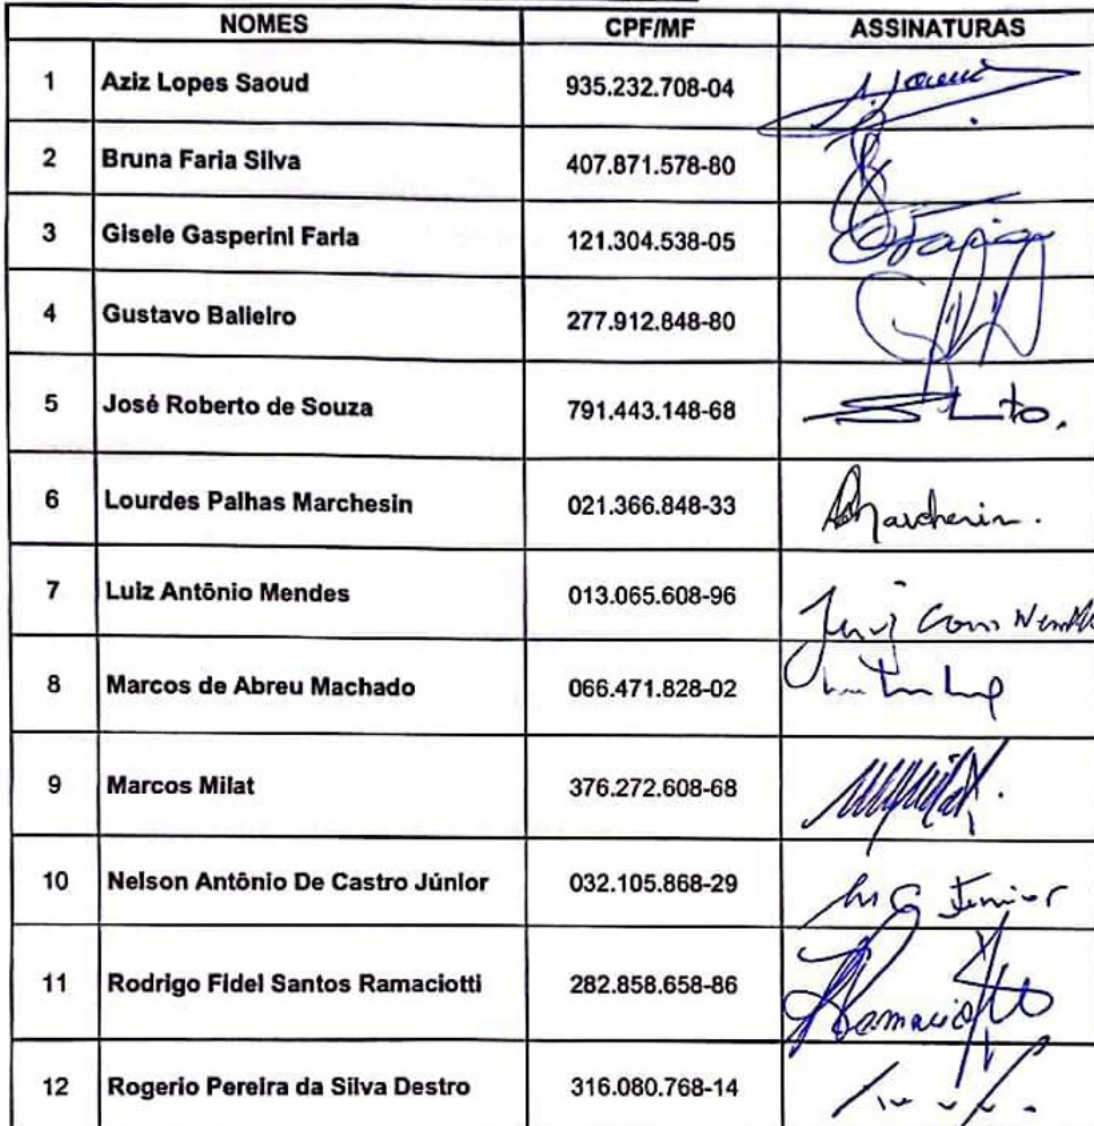 NOMES CPF/MF ASSINATURAS
1 Aziz Lopes Saoud 935.232.708-04
2 Bruna Faria Silva 407.871.578-80
3 Gisele Gasperini Faria 121.304.538-05 Faria
4 Gustavo Balieiro 277.912.848-80
5 José Roberto de Souza 791.443.148-68
6 Lourdes Palhas Marchesin 021.366.848-33 Marchesin.
7 Luiz Antônio Mendes 013.065.608-96
8 Marcos de Abreu Machado 066.471.828-02
9 Marcos Milat 376.272.608-68
10 Nelson Antônio De Castro Júnior 032.105.868-29 Junior
11 Rodrigo Fidel Santos Ramaciotti 282.858.658-86 Ramaciotti
12 Rogerio Pereira da Silva Destro 316.080.768-14